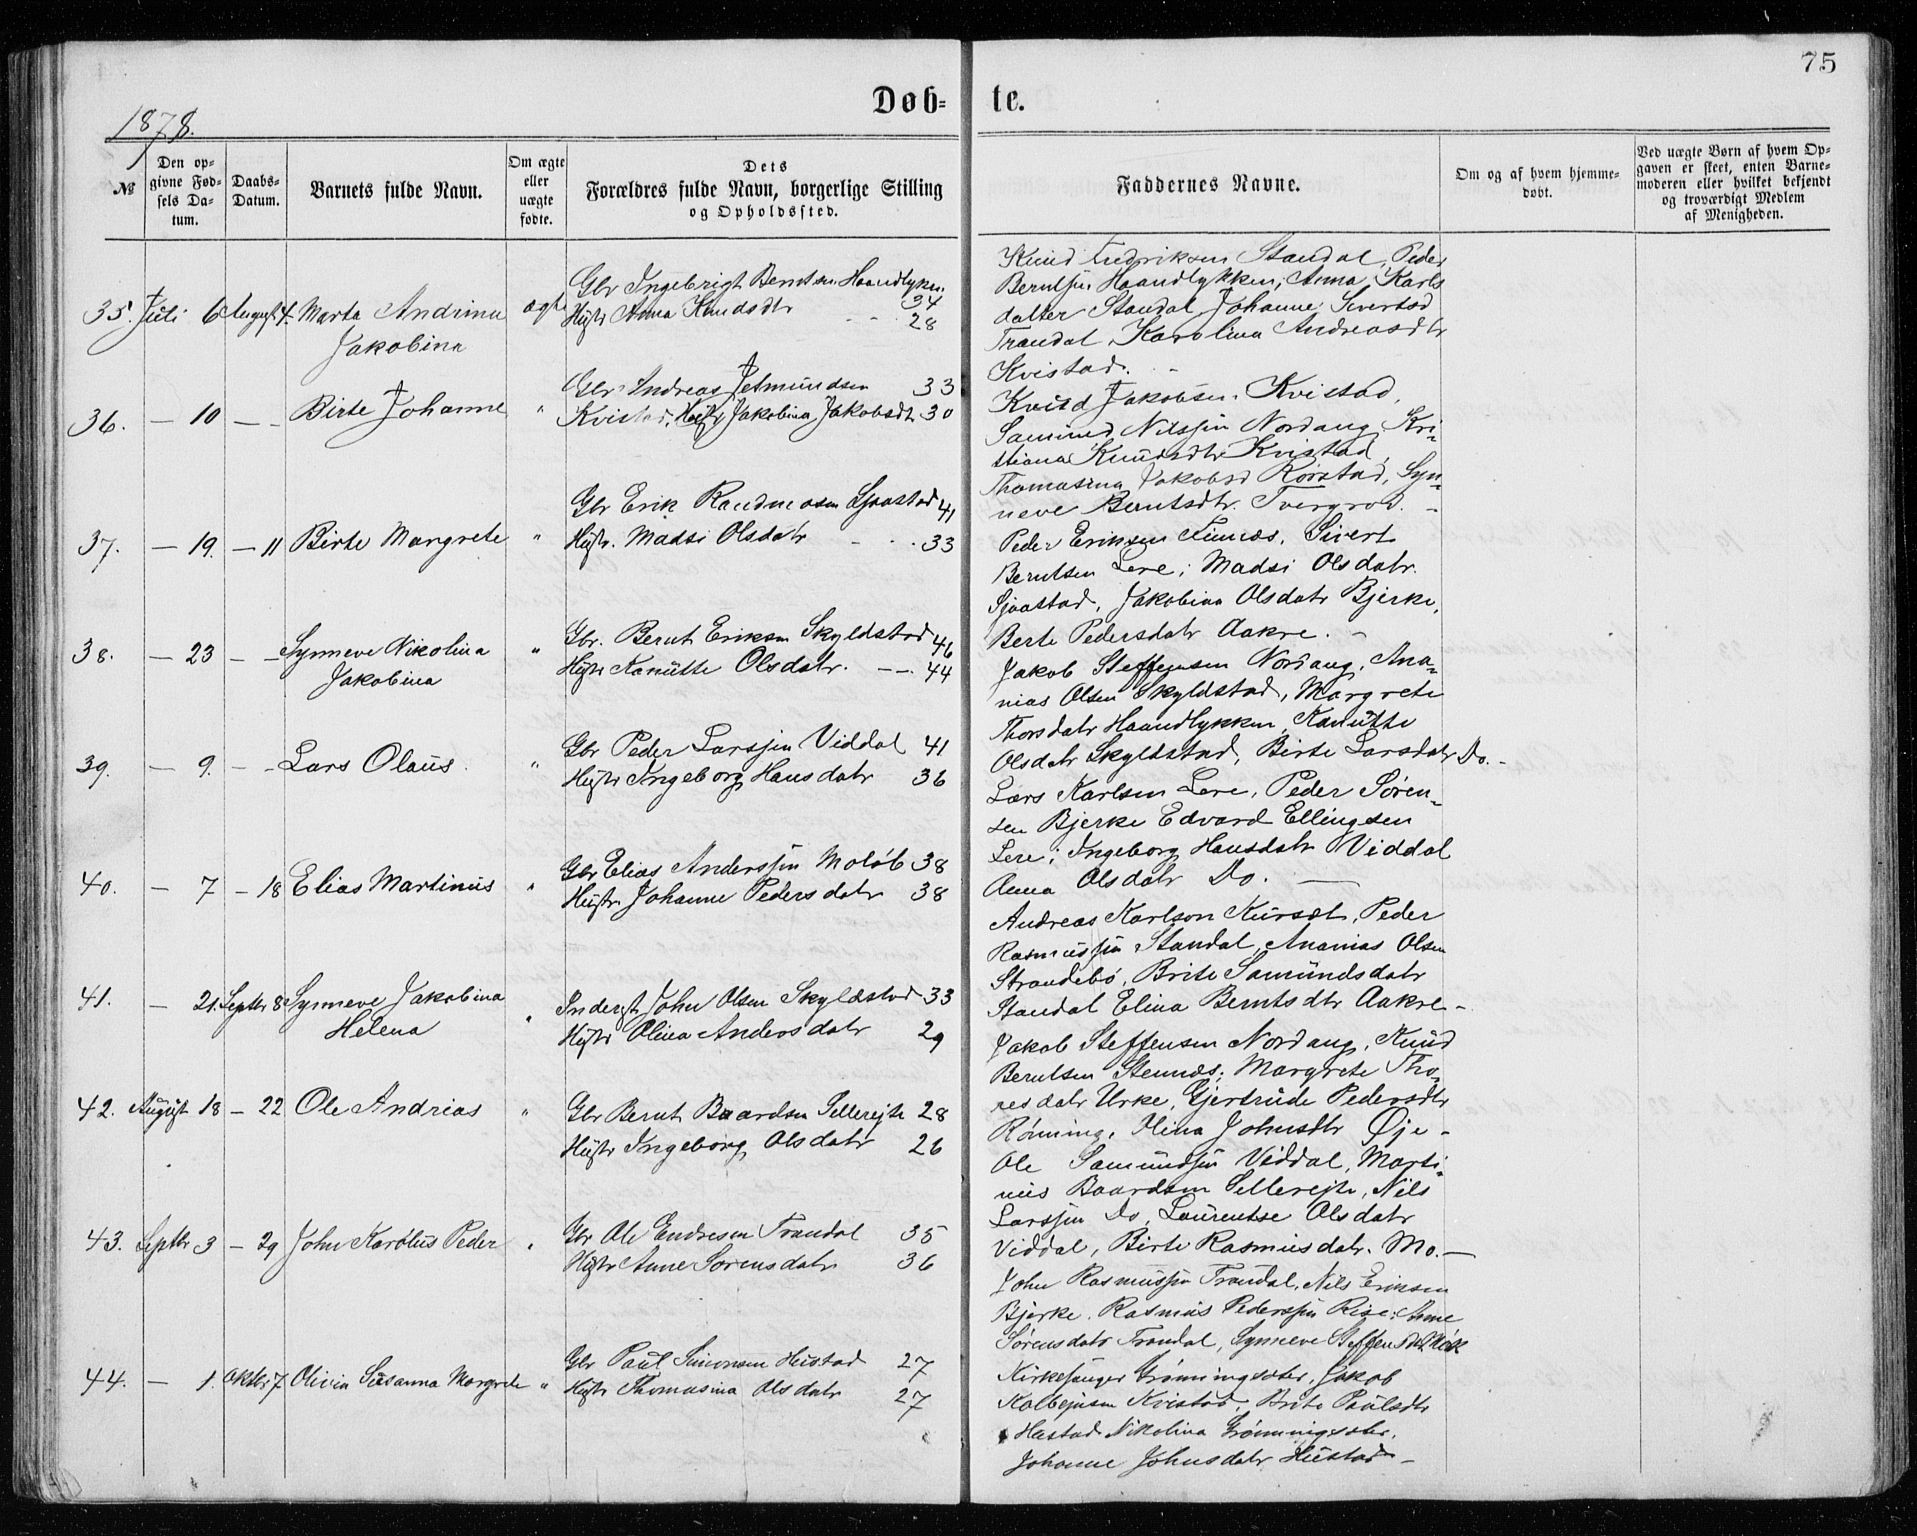 75
Døb= te.
1878.
№
Den op=
givne Fød=
sels Da=
tum.
Daabs=
Datum.
Barnets fulde Navn.
Om ægte
eller
uægte
fødte.
Dets
Forældres fulde Navn, borgerlige Stilling
og Opholdssted.
Faddernes Navne.
Om og af hvem hjemme=
døbt.
Ved uægte Børn af hvem Op=
gaven er skeet, enten Barne=
moderen eller hvilket bekjendt
og troværdigt Medlem
af Menigheden.
35. Juli 6 August 4. Marta Andrina
Jakobina
ægte
Gbr Ingebrigt Berntsen Haandlykken 34
Hustr Anna Knudsdtr - - 28
Knud Fredriksen Standal, Peder
Berntsen Haandlykken, Anna Karls
datter Standal, Johanne Sivertsd
Trandal, Karolina Andreasdtr
Kvistad.
36. — 10 — — Birte Johanne "
Gbr Andreas Jetmundsen 33
Kvistad, Hustr Jakobina Jakobsdtr 30
Knud Jakobsen Kvistad,
Samund Nilssen Nordang, Kri=
stiana Knudsdtr Kvistad,
Thomasina Jakobsd Rørstad, Syn=
neve Berntsdtr. Tvergrov. -
37. — 19. — 11 Birte Margrete "
Gbr Erik Rasmusen Sjaastad 41
Hustr. Madsi Olsdatr - - 33
Peder Eriksen Finnæs, Sivert
Berntsen Lere; Madsi Olsdatr.
Sjaastad, Jakobina Olsdatr Bjerke,
Berte Pedersdatr Aakre. -
38. — 23 — — Synneve Nikolina
Jakobina
"
Gbr. Bernt Eriksen Skyldstad 46
Hustr Kanutte Olsdatr. — — 44
Jakob Steffensen Nordang, Ana=
nias Olsen Skyldstad, Margrete
Thorsdatr Haandlykken, Kanutte
Olsdatr Skyldstad, Birte Larsdatr Do. -
39. — 9. — — Lars Olaus. "
Gbr Peder Larssen Viddal 41
Hustr Ingeborg Hansdatr 36
Lars Karlsen Lere, Peder Søren=
sen Bjerke Edvard Ellingsen
Lere; Ingeborg Hansdatr Viddal
Anna Olsdatr Do. —
40. — 7 — 18 Elias Martinus "
Gbr Elias Anderssen Moløb 38
Hustr Johanne Pedersdatr 38
Andreas Karlson Kursæt, Peder
Rasmussen Standal, Ananias Olsen
Strandebø, Brite Samundsdatr
Standal Elina Berntsdtr Aakre -
41. — 21. Septbr 8 Synneve Jakobina
Helena
"
Inderst John Olsen Skyldstad 33
Hustr Olina Andersdatr 29
Jakob Steffensen Nordang, Knud
Berntsen Stennæs; Margrete Tho=
resdatr Urke, Gjertrude Pedersdtr
Rønning, Olina Johnsdtr Øje -
42. August 18 — 22 Ole Andrias "
Gbr Bernt Baardsen Sellerejte 28
Hustr Ingeborg Olsdatr 26
Ole Samundsen Viddal, Marti=
nus Baardsen Sellerejte, Nils
Larssen Do, Laurentse Olsdatr
Viddal, Birte Rasmusdatr. Mo. —
43. Septbr 3 — 29 John Karolus Peder "
Gbr Ole Endresen Trandal 35
Hustr Anne Sørensdatr 36
John Rasmussen Trandal, Nils Eriksen
Bjerke, Rasmus Pederssen Rise; Anne
Sørensdatr Trandal, Synneve Steffensdtr
44. — 1. Oktbr 7 Olivia Susanna Margrete "
Gbr Paul Simonsen Hustad 27
Hustr Thomasina Olsdatr 27
Kirkesanger Grønningsæter, Jakob
Kolbejnsen Kvistad, Brite Paulsdtr
Hustad Nikolina Grønningsæter,
Johanne Johnsdatr Hustad -